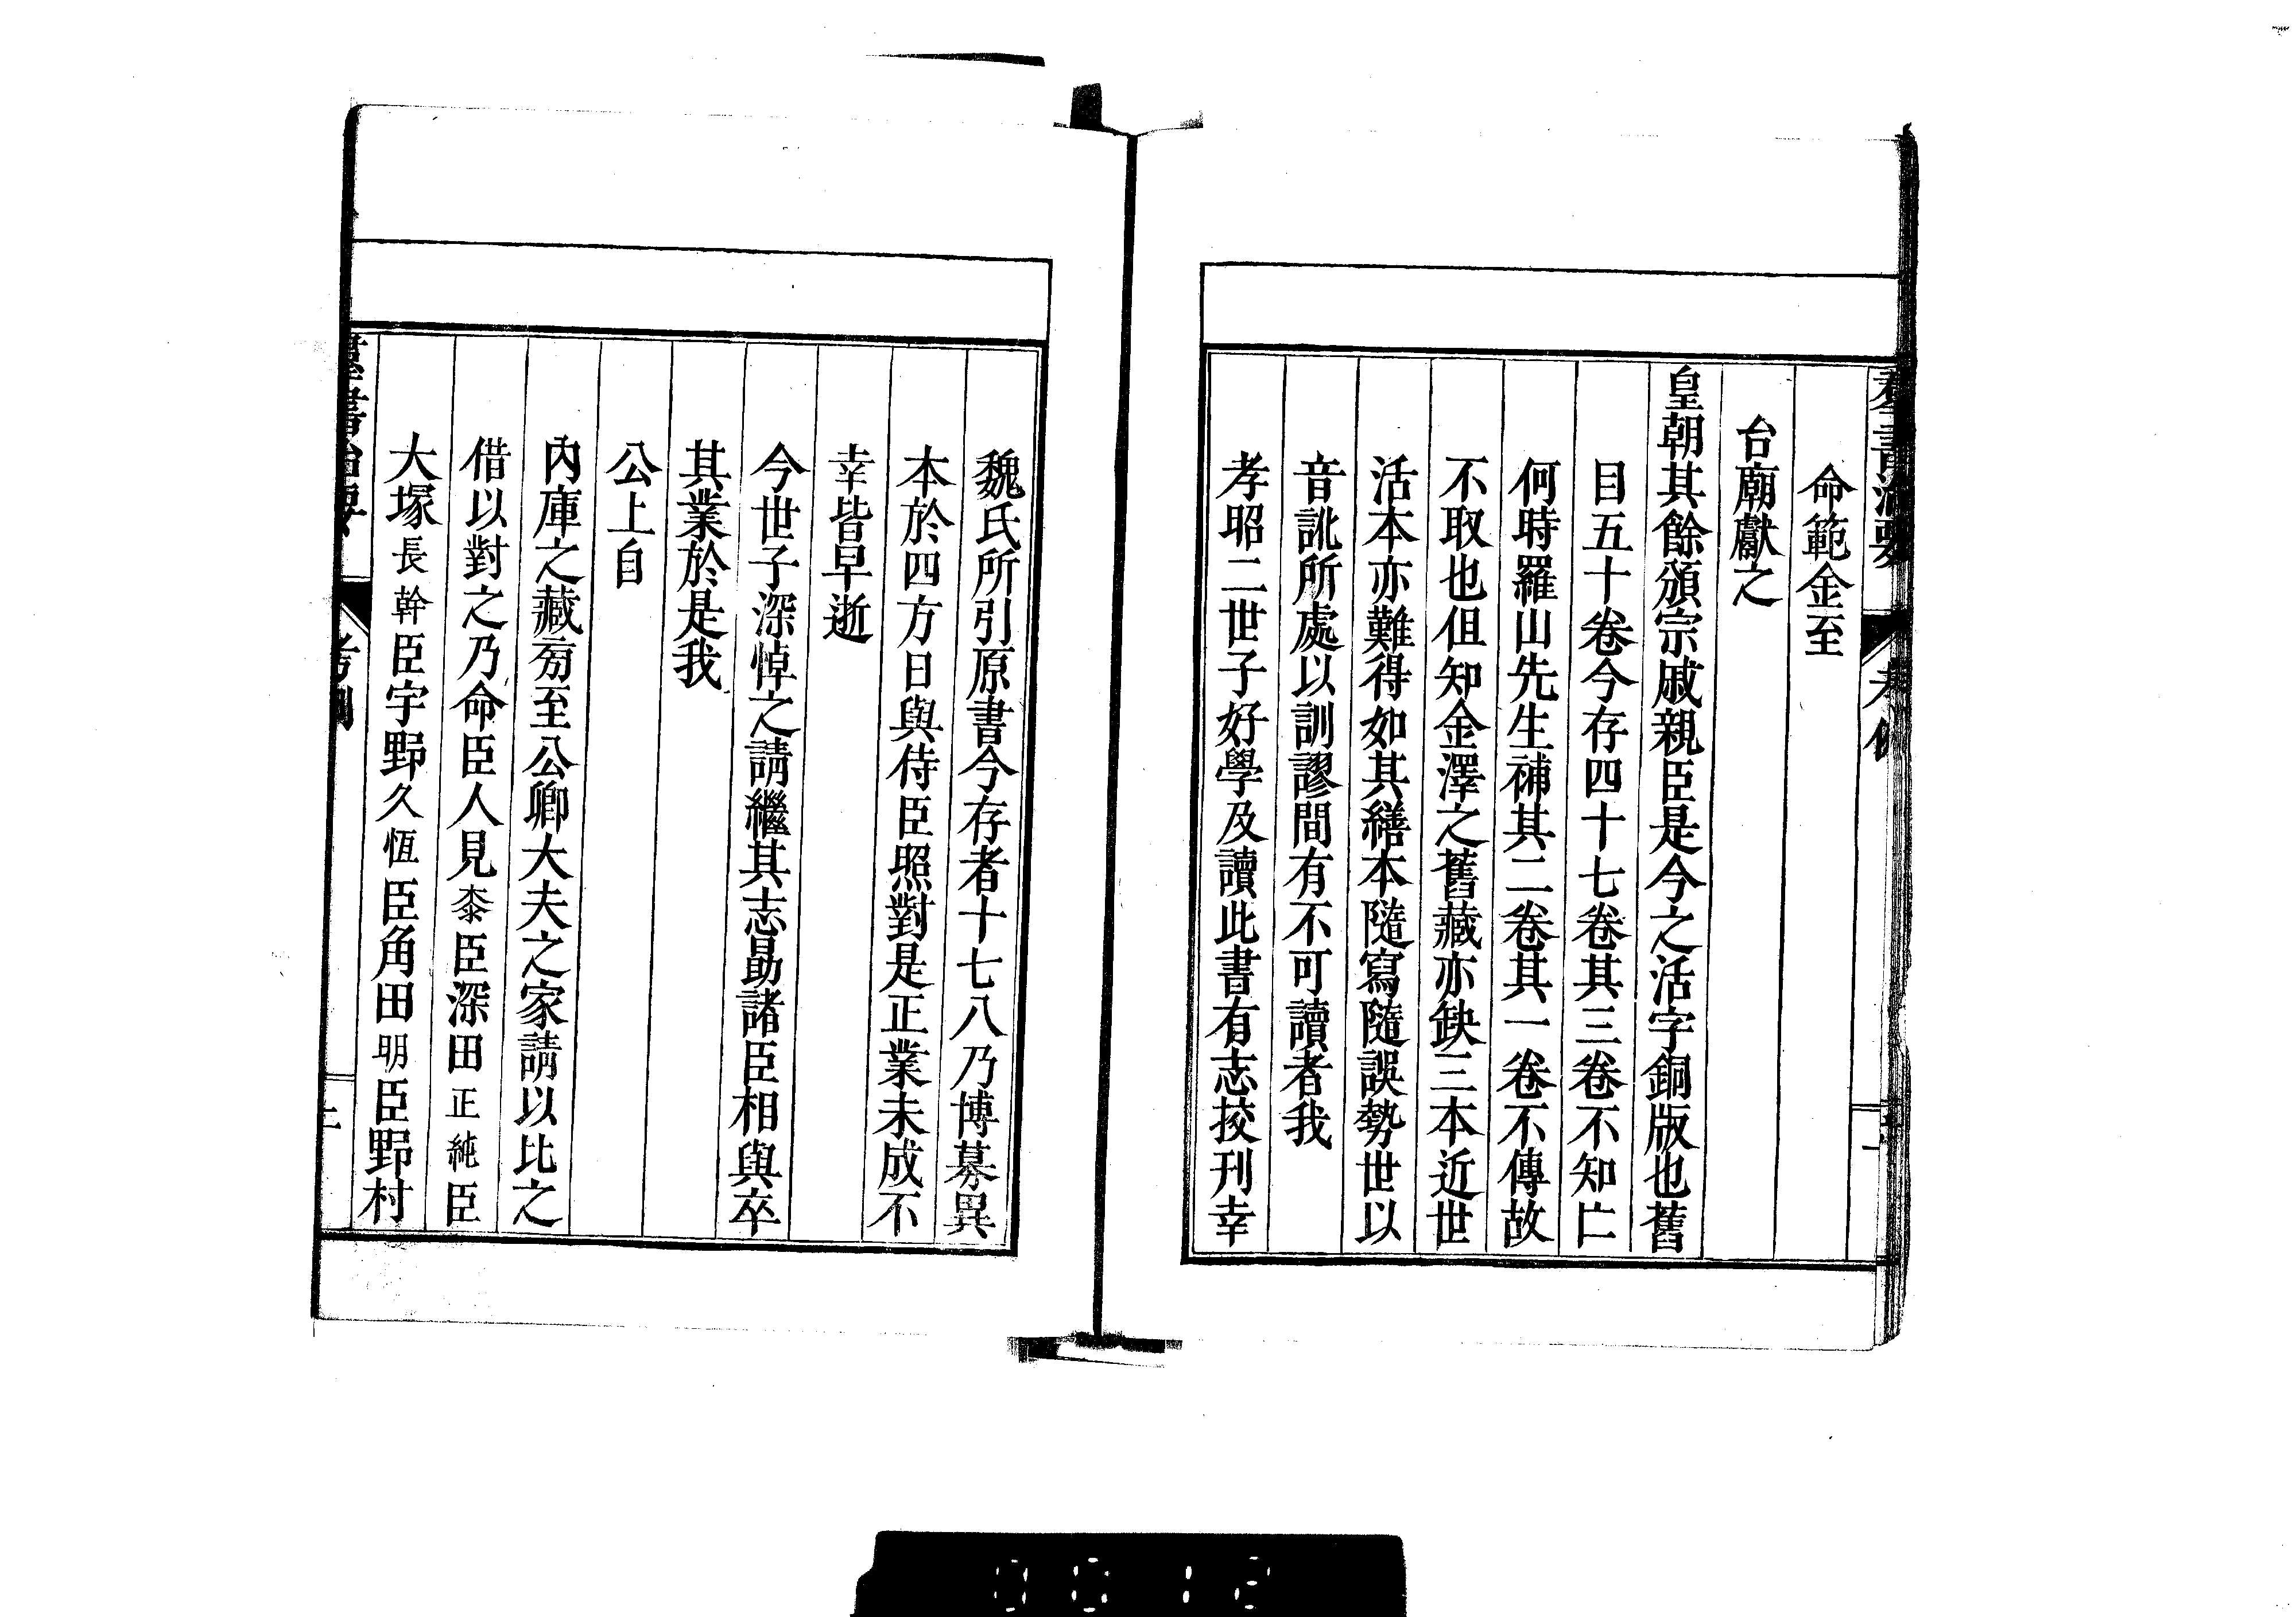 羣書治要
命範金至
台廟獻之
皇朝其餘頒宗戚親臣是今之活字銅版也舊
目五十卷今存四十七卷其三卷不知亡
何時羅山先生補其二卷其一卷不傳故
不取也但知金澤之舊藏亦缺三本近世
活本亦難得如其繕本隨寫隨誤勢世以
音訛所處以訓謬間有不可讀者我
孝昭二世子好學及讀此書有志挍刊幸
魏氏所引原書今存者十七八乃博募異
本於四方日與侍臣照對是正業未成不
幸皆早逝
今世子深悼之請繼其志勗諸臣相與卒
其業於是我
公上自
內庫之藏旁至公卿大夫之家請以比之
借以對之乃命臣人見桼臣深田正純臣
大塚長幹臣宇野久恆臣角田明臣野村
羣書治要
0012